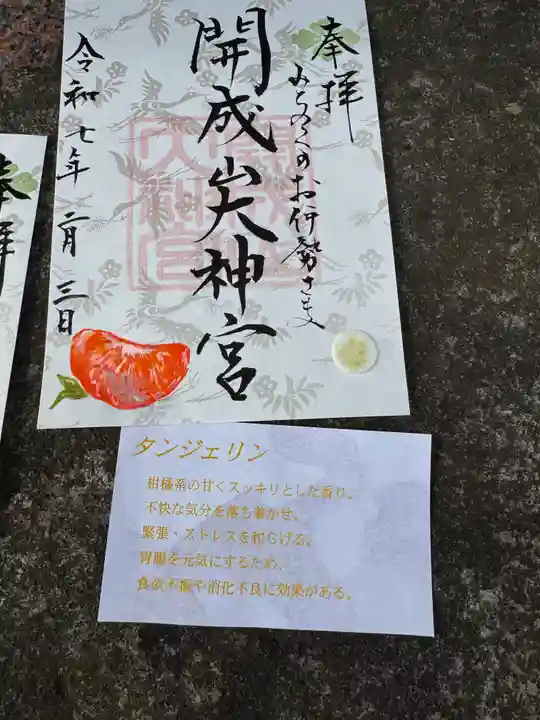 奉拝
みちのくのお伊勢さま
開成山大神宮
令和七年二月三日
奉拝
タンジェリン
柑橘系の甘くスッキリとした香り。
不快な気分を落ち着かせ、
緊張・ストレスを和らげる。
胃腸を元気にするため、
食欲不振や消化不良に効果がある。